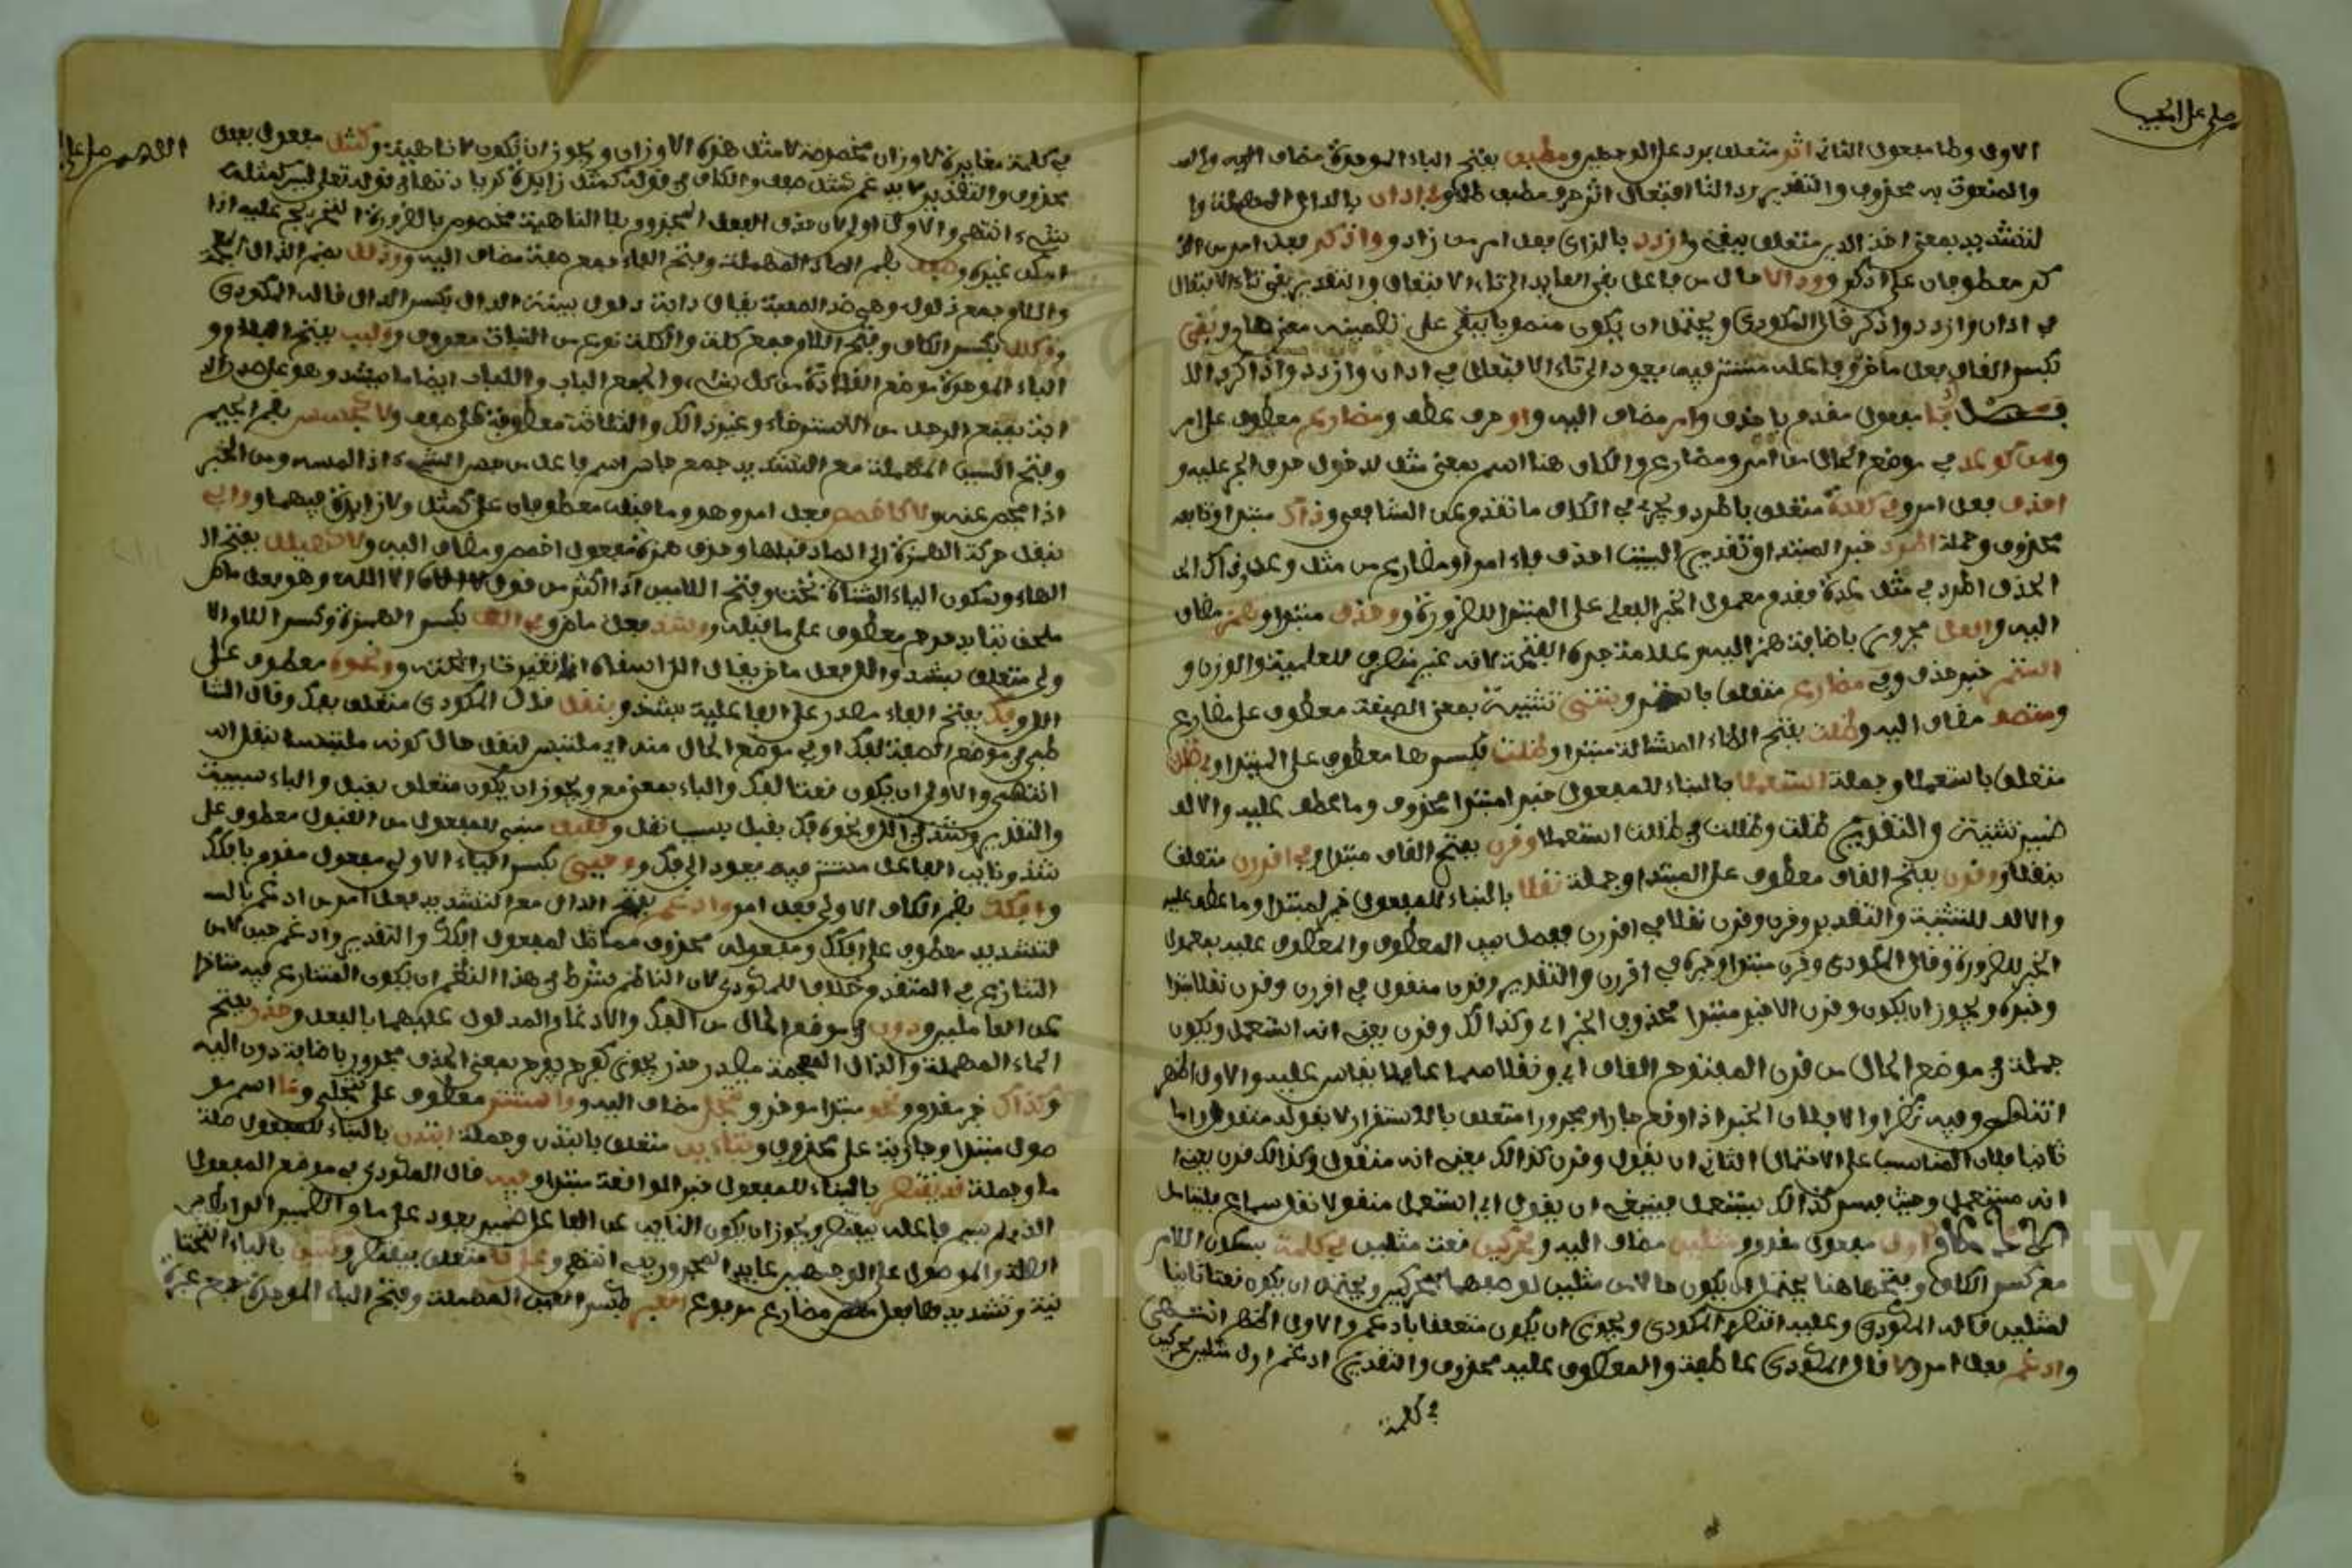 صلى على الحبيب
الاول وطا مفعول الثانى اثر متعلق برد على الوجهين ومطبق بفتح الباء الموحدة مضاف اليه والصـ
والمنعوت به محذوف والتقدير رد التا افتعال اثر حرف مطبق طا وفى ادان بالدال المهملة وا
لتشديد بمعنى اخذ الدين متعلق ببقى وازدد بالزاى فعل امر من زاد وواذكر فعل امر من الذ
كر معطوفان على ادان ودالا حال من فاعل بقى العايد الى تاء الافتعال والتقدير بقى تاء الافتعال
فى ادان وازدد واذكر قال المكودى ويحتمل ان يكون منصوبا ببقى على تضمينه معنى صار وبقى
بكسر القاف فعل ماض وفاعله مستتر فيه يعود الى تاء الافتعال فى ادان وازدد واذكر دالا
فصل فا مفعول مقدم باحذف وامر مضاف اليه واو حرف عطف ومضارع معطوف على امر
ومن كوعد فى موضع الحال من امر ومضارع والكاف هنا اسم بمعنى مثل لدخول حرف الجر عليه و
احذف فعل امر وفى كعدة متعلق باطرد ويجرى فى الكاف ما تقدم عن الشاطبى وذاك مبتدا وتابعه
محذوف وجملة اطرد خبر المبتدا وتقدير البيت احذف فاء امر او مضارع من مثل وعد وذاك
الحذف اطرد فى مثل عدة فقدم معمول الخبر الفعلى على المبتدا للضرورة ووحذف مبتدا وهمز مضاف
اليه وافعل مجرور باضافة همز اليه وعلامة جره الفتحة لانه غير منصرف للعلمية والوزن و
استمر خبر حذف وفى مضارع متعلق باستمر وبنيتى تثنية بمعنى الصيغة معطوف على مضارع
ومتصف مضاف اليه وظلت بفتح الظاء المشالة مبتدا وظلت بكسرها معطوف على المبتدا وفى ظللت
متعلق باستعملا وجملة استعملا بالبناء للمفعول خبر المبتدا وما عطف عليه والالف
ضمير تثنية والتقدير ظلت وظلت فى ظللت استعملا وقرن بفتح القاف مبتدا وفى اقررن متعلق
بنقلا وقرن بفتح القاف معطوف على المبتدا وجملة نقلا بالبناء للمفعول خبر المبتدا وما عطف عليه
والالف للتثنية والتقدير وقرن وقرن نقلا فى اقررن ففصل بين المعطوف والمعطوف عليه بمعمول
الخبر للضرورة وقال المكودى وقرن مبتدا وخبره فى اقررن والتقدير وقرن منقول فى اقررن وقرن نقلا مبتدا
وخبره ويجوز ان يكون وقرن الاخير مبتدا محذوف الخبر اى وكذالك وقرن يعنى انه استعمل ويكون
جملة فى موضع الحال من قرن المفتوح القاف اى ونقلا مما عليها يقاس عليه والاول اظهر
انتهى وفيه نظر اولا فلان الخبر اذا وقع جارا ومجرورا متعلق بالاستقرار لا بقوله منقول واما
ثانيا فلان المناسب على الاحتمال الثانى ان يقول وقرن كذالك يعنى انه منقول وكذالك قرن يعنى
انه مستعمل وحيث فسر كذالك بيستعمل فينبغى ان يقول اى استعمل منقولا نقل سماع فليتامل
الادغام اول مفعول مقدم ومثلين مضاف اليه ومحركين نعت مثلين فى كلمة بسكون اللام
مع كسر الكاف وفتحها هنا يحتمل ان يكون حالا من مثلين لوصفهما بمحركين ويحتمل ان يكون نعتا ثانيا
لمثلين قاله المكودى وعليه اقتصر المكودى ويجوز ان يكون متعلقا بادغم والاول اظهر انتهى
وادغم فعل امر ولا قال المكودى عاطفة والمعطوف عليه محذوف والتقدير ادغم اول مثلين محركين
فى كلمة
اللهم صل على
فى كلمة مغايرة لاوزان مخصوصة لا مثل هذه الاوزان ويجوز ان يكون لا ناهية وكمثل مفعول بفعل
محذوف والتقدير لا يدغم كمثل صفف والكاف فى قوله كمثل زايدة كزيادتها فى قوله تعلى ليس كمثله
شىء انتهى والاول اولى لان حذف الفعل المجزوم بلا الناهية مخصوص بالضرورة لا يخرج عليه اذا
امكن غيره وصفف بضم الصاد المهملة وفتح الفاء جمع صفة مضاف اليه وذلل بضم الذال المعجمة
واللام جمع ذلول وهى ضد الصعبة يقال دابة ذلول بينة الذل بكسر الذال قاله المكودى
وكلل بكسر الكاف وفتح اللام جمع كلة والكلة نوع من الثياب معروف ولبب بفتح اللام و
الباء الموحدة موضع القلادة من كل شىء والجمع الباب واللبب ايضا ما يشد وهو على صدر الدا
ابة يمنع الرحل من الاسترخاء وغير ذالك والثلاثة معطوفة على صفف ولا كجسس بضم الجيم
وفتح السين المهملة مع التشديد جمع جاس اسم فاعل من جس الشىء اذا لمسه ومن الخبر
اذا فحص عنه ولا كاخصص فعل امر وهو وما قبله معطوفان على كمثل ولا زايدة فيهما وابى
بنقل حركة الهمزة الى الصاد قبلها وحذف همزة مفعول اخصص ومضاف اليه ولا كهيلل بفتح ال
الهاء وسكون الياء المثناة تحت وفتح اللامين اذا اكثر من قول لا اله الا الله وهو فعل ماض
ملحق بدحرج معطوف على ما قبله وشذ فعل ماض وفى الل بكسر الهمزة وكسر اللام الا
ولى متعلق بشذ والل فعل ماض يقال الل السقاء اذا تغيرت رائحته ونحوه معطوف على
الل وفك بفتح الفاء مصدر على الفاعلية بشذ وبنقل قال المكودى متعلق بفك وقال الشا
طبى فى موضع الصفة لفك او فى موضع الحال منه اى ملتبس لنقل حال كونه ملتبسا بنقل انه
انتهى والاولى ان يكون نعتا لفك والباء بمعنى مع ويجوز ان يكون متعلق بقبل والباء سببية
والتقدير وشذ فى الل ونحوه فك بقبل بسبب نقل وفقبل مبنى للمفعول من القبول معطوف على
شذ ونايب الفاعل مستتر فيه يعود الى فك وحيى بكسر الياء الاولى مفعول مقدم بافكك
وافكك بضم الكاف الاولى فعل امر وادغم بفتح الدال مع التشديد فعل امر من ادغم بالـ
لتشديد معطوف على افكك ومفعوله محذوف مماثل لمفعول افكك والتقدير وادغم حيى لا من
التنازع فى المتقدم خلافا للمكودى لان الناظم شرط فى هذا النظم ان يكون المتنازع فيه متاخرا
عن العاملين ودون فى موضع الحال من الفك والادغام المدلول عليهما بالفعل وحذر بفتح
الحاء المهملة والذال المعجمة مصدر حذر يحذر كفرح يفرح بمعنى الحذف مجرور باضافة دون اليه
وكذاك خبر مقدم ونحو مبتدا موخر وتجلى مضاف اليه وواستتر معطوف على تجلى وما اسم مو
صول مبتدا وجارية على محذوف وبتاءين متعلق بابتدى وجملة ابتدى بالبناء للمفعول صلة
ما وجملة قد يقتصر بالبناء للمفعول خبر الموافقة مبتدا وفيه قال المكودى فى موضع المفعول
الذى لم يسم فاعله بيقتصر ويجوز ان يكون النايب عن الفاعل ضمير يعود على ما والضمير الرابط من
الصلة والموصول على الوجهين عايد المجرور بفى انتهى وعلى تا متعلق بيقتصر وكتبين بالياء التحتا
نية وتشديدها فعل مضارع مرفوع العبر بكسر العين المهملة وفتح الباء الموحدة جمع عبرة